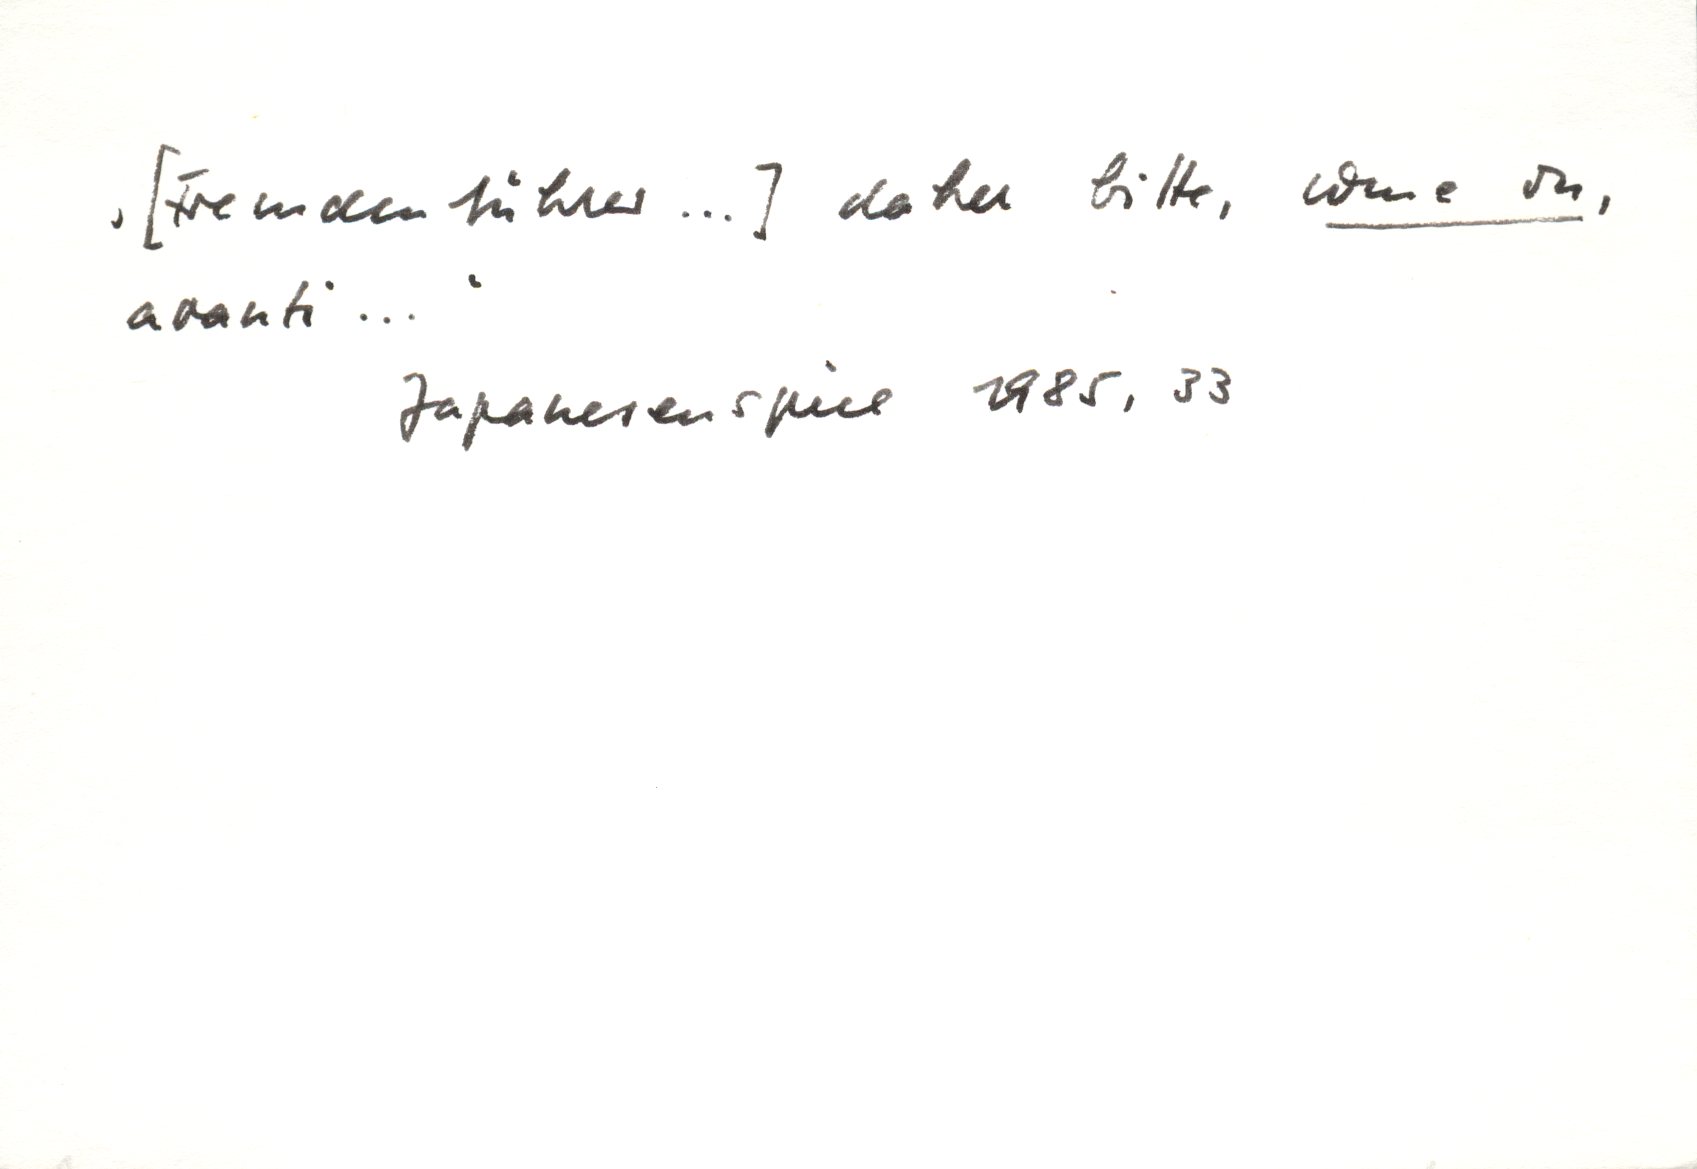 ‚[Fremdenführer ...] daher bitte, come on,
avanti ...‘
Japanesenspiel 1985, 33